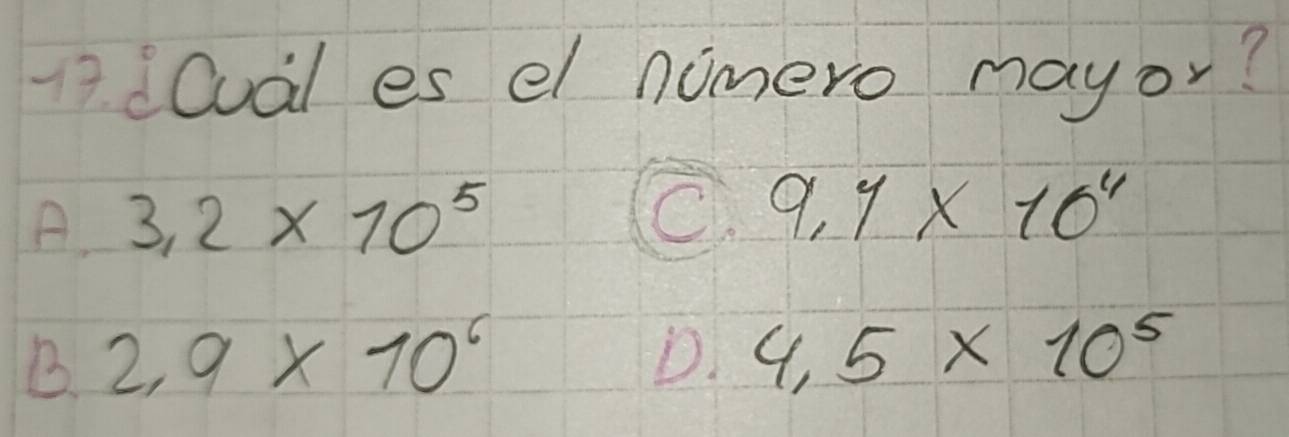 17. ¿Cuál es el número mayor?
A. 3,2 x 10⁵ C. 9,1 x 10⁴
B. 2,9 x 10⁶ D. 4,5 x 10⁵